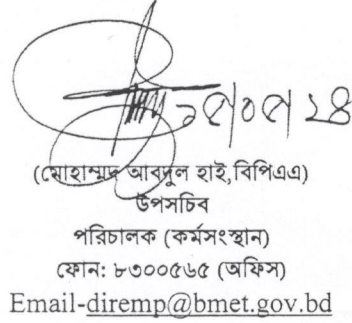 (মোহাম্মদ আবদুল হাই,বিপিএএ)
উপসচিব
পরিচালক (কর্মসংস্থান)
ফোন: ৮৩০০৫৬৫ (অফিস)
Email-diremp@bmet.gov.bd